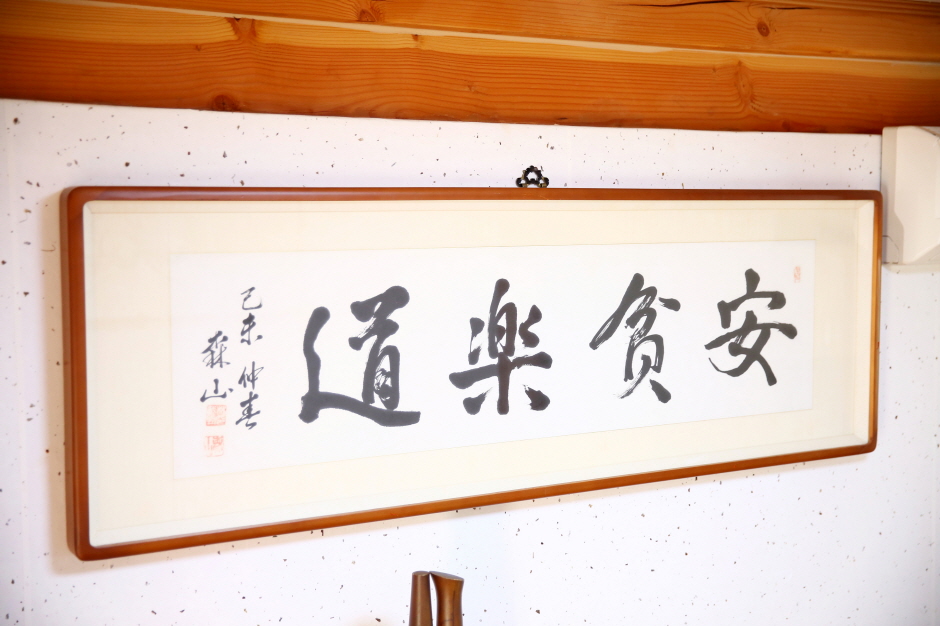 安貧樂道
己未仲春
森山